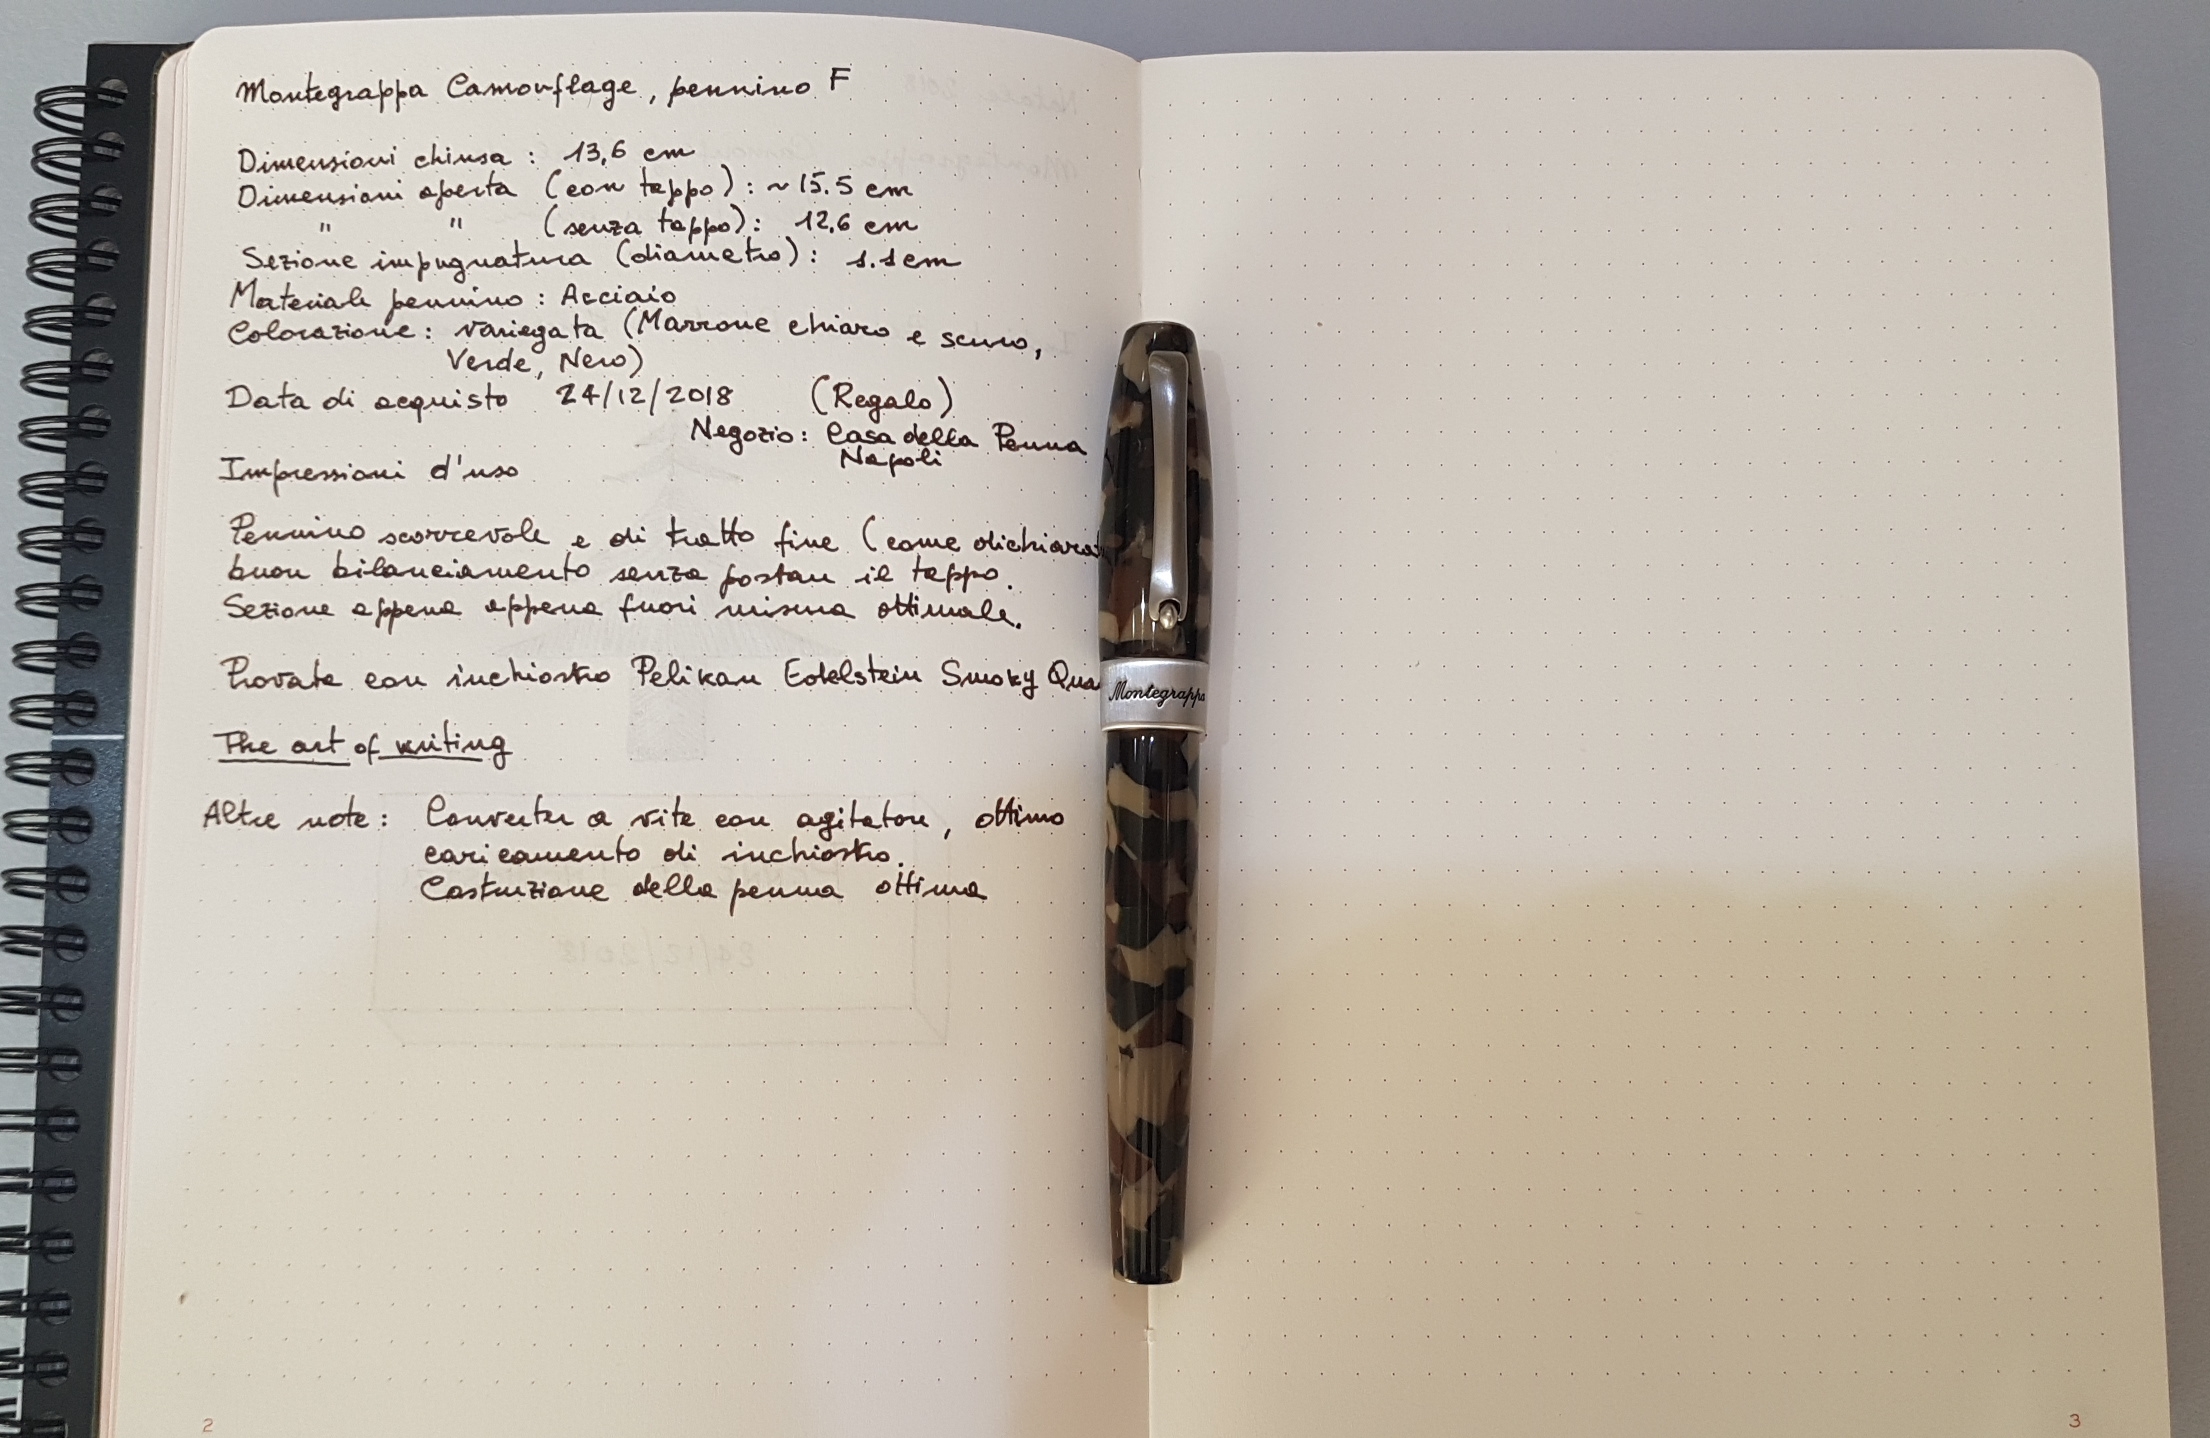 Montegrappa Camouflage, pennino F
Dimensioni chiusa : 13,6 cm
Dimensioni aperta (con tappo) : ~ 15.5 cm
" " (senza tappo) : 12,6 cm
Sezione impugnatura (diametro) : 1.1 cm
Materiale pennino : Acciaio
Colorazione : variegata (Marrone chiaro e scuro,
Verde, Nero)
Data di acquisto 24/12/2018 (Regalo)
Negozio : Casa della Penna
Napoli
Impressioni d'uso
Pennino scorrevole e di tratto fine (come dichiarat
buon bilanciamento senza postare il tappo.
Sezione appena appena fuori misura ottimale.
Provata con inchiostro Pelikan Edelstein Smoky Qua
The art of writing
Altre note : Converter a vite con agitatore, ottimo
caricamento di inchiostro.
Costruzione della penna ottima
Montegrappa
24/12/2018
2
3